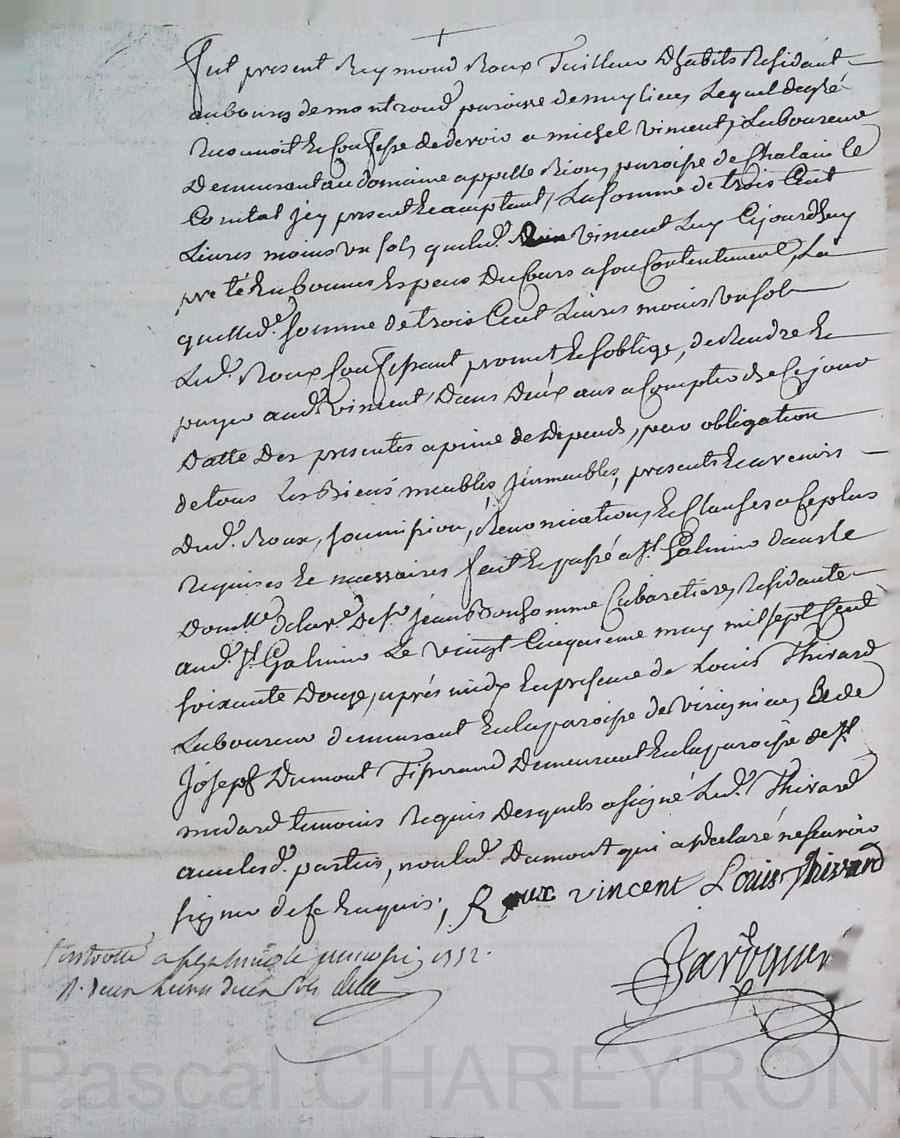 Fut present Reymond Roux Tailleur Dhabits Residant
au bourg de montrond paroisse de meylieu Lequel de gré
Reconnoit Et Confesse de devoir a michel vincent, Laboureur
Demeurant au domaine appellé Rion, paroisse de Chalain le
Comtal jcy present Et acceptant, La somme de trois Cent
Livres moins un sols que led.t vincent Luy a Cejourdhuy
preté En bonnes Especes Du Cours a son Contentement, La
quelle d.e somme de trois Cent Livres moins un sols
Led.t Roux Confessant promet Et soblige, de Rendre Et
payer aud.t vincent, Dans Deux ans a Compter de Ce jour
Datte Des presentes a peine de Depends, par obligation
de tous Les Biens meubles, jmmeubles, presents Et avenirs
Dud.t Roux, soumission, Renonciations, Et Clauses a Ce plus
Requises Et necessaires fait Et passé a S.t Galmier dans le
Domille de la ve. De Sr. jean Bonhomme Cabaretiere, Residante
aud.t S.t Galmier Le vingt Cinquieme may mil sept Cent
soixante Douze, aprés midy En presence de Louis Thivard
Laboureur demeurant En la paroisse de virignieu, Et de
Joseph Dumont Tisserand Demeurant En la paroisse de S.t
medard temoins Requis Desquels a signé Led.t Thivard
avec lesd. parties, non led.t Dumont qui a Declaré ne sçavoir
signer de Ce Enquis,
Roux vincent Louis Thivard
a St galmier le
Pascal CHAREYRON